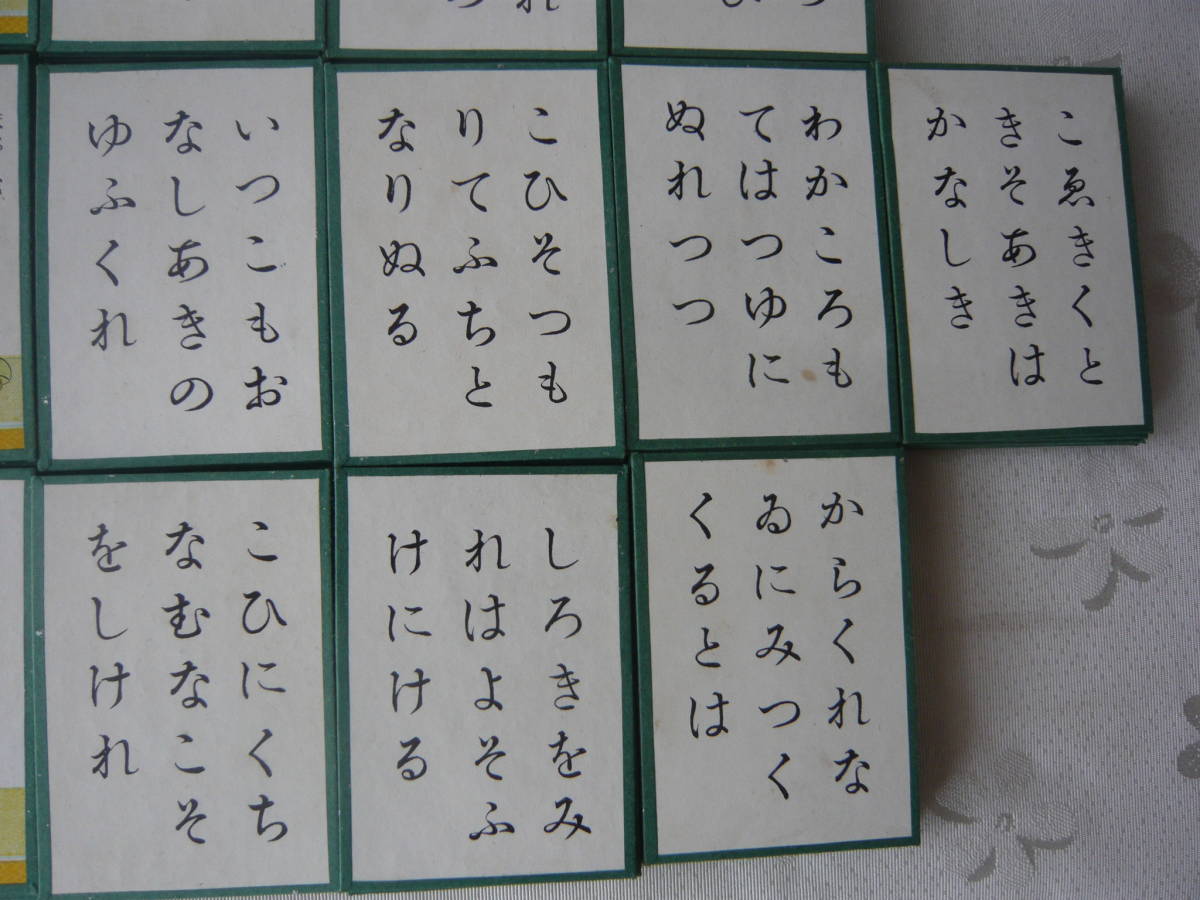 こゑきくと
きそあきは
かなしき
わかころも
てはつゆに
ぬれつつ
こひそつも
りてふちと
なりぬる
いつこもお
なしあきの
ゆふくれ
からくれな
ゐにみつく
くるとは
しろきをみ
れはよそふ
けにける
こひにくち
なむなこそ
をしけれ